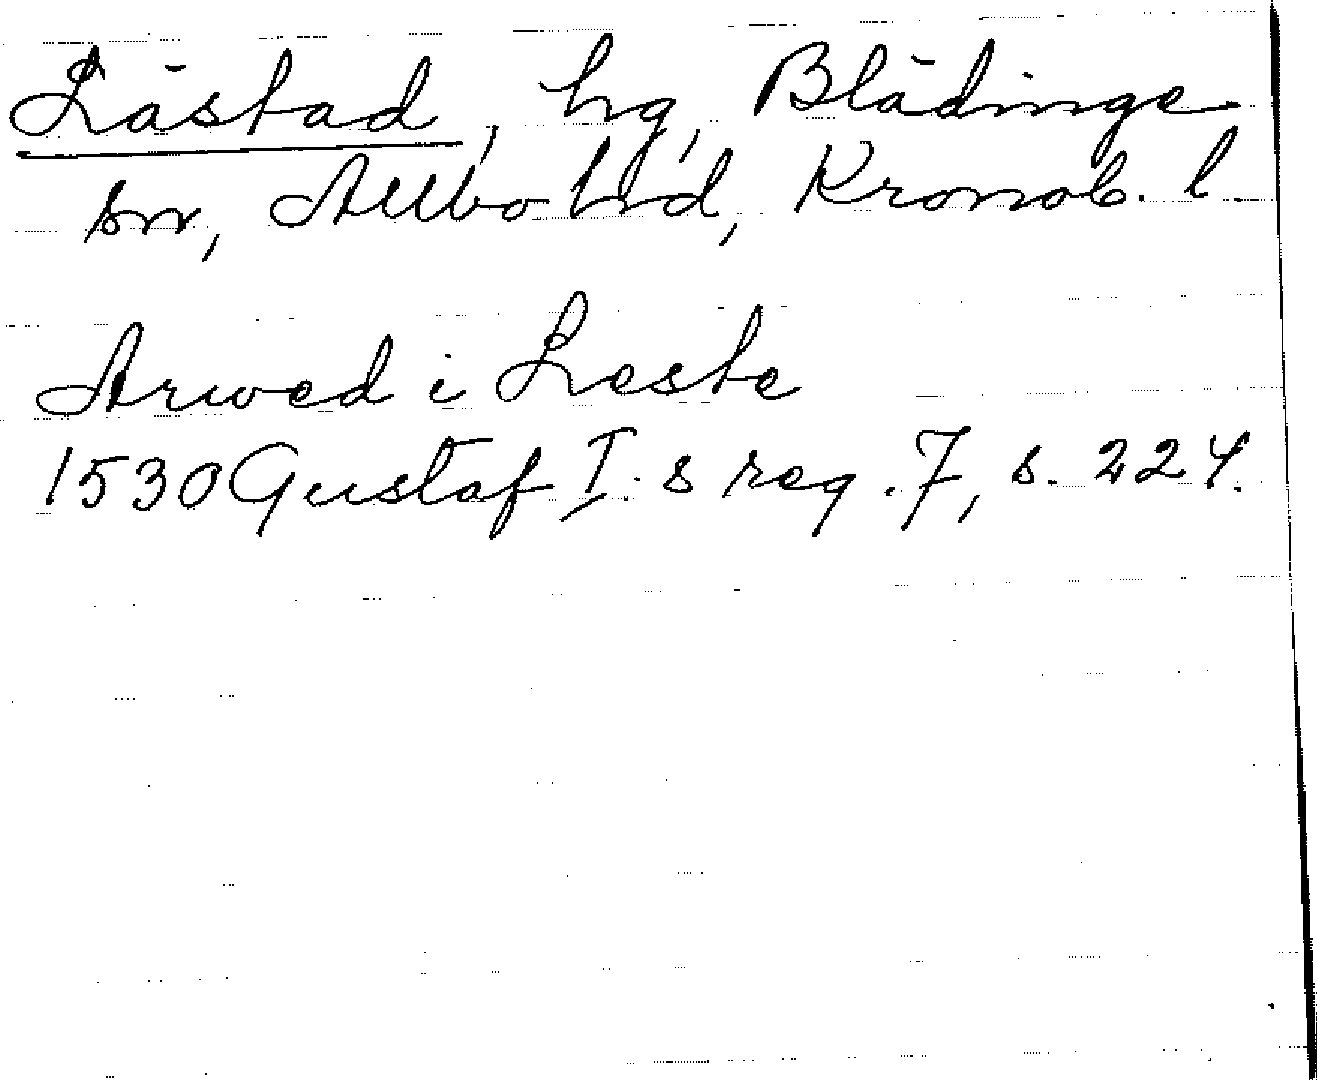 Lästad, hg, Blädinge
sn, Allbo hd, Kronob. l.
Arwed i Leste
1530 Gustaf I. s reg. 7, s. 224.